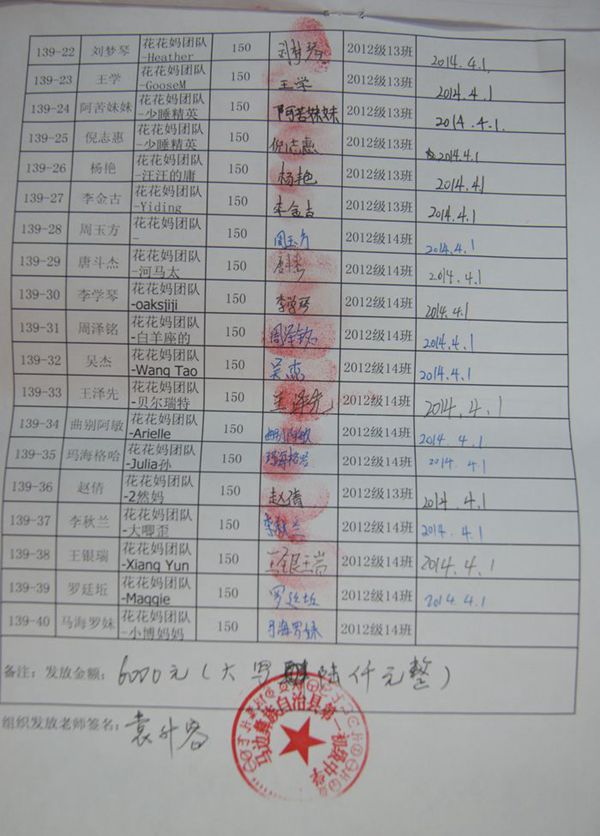 139-22 刘梦琴 花花妈团队-Heather 150 刘梦琴 2012级13班 2014.4.1.
139-23 王学 花花妈团队-GooseM 150 王学 2012级13班 2014.4.1
139-24 阿苦妹妹 花花妈团队-少睡精英 150 阿苦妹妹 2012级13班 2014.4.1.
139-25 倪志惠 花花妈团队-少睡精英 150 倪志惠 2012级13班 2014.4.1
139-26 杨艳 花花妈团队-汪汪的庸 150 杨艳 2012级13班 2014.4.1
139-27 李金古 花花妈团队-Yiding 150 李金古 2012级13班 2014.4.1
139-28 周玉方 花花妈团队- 150 周玉方 2012级14班 2014.4.1
139-29 唐斗杰 花花妈团队-河马太 150 2012级14班 2014.4.1
139-30 李学琴 花花妈团队-oaksjiji 150 李学琴 2012级14班 2014.4.1
139-31 周泽铭 花花妈团队-白羊座的 150 周泽铭 2012级14班 2014.4.1
139-32 吴杰 花花妈团队-Wang Tao 150 吴杰 2012级14班 2014.4.1
139-33 王泽先 花花妈团队-贝尔瑞特 150 王泽先 2012级14班 2014.4.1
139-34 曲别阿敏 花花妈团队-Arielle 150 曲别阿敏 2012级14班 2014.4.1
139-35 玛海格哈 花花妈团队-Julia孙 150 玛海格哈 2012级14班 2014.4.1
139-36 赵倩 花花妈团队-2然妈 150 赵倩 2012级13班 2014.4.1
139-37 李秋兰 花花妈团队-大唧歪 150 李秋兰 2012级14班 2014.4.1
139-38 王银瑞 花花妈团队-Xiang Yun 150 王银瑞 2012级14班 2014.4.1
139-39 罗廷坵 花花妈团队-Maggie 150 罗廷坵 2012级14班 2014.4.1
139-40 马海罗妹 花花妈团队-小博妈妈 150 马海罗妹 2012级14班
备注：发放金额：6000元(大写 陆仟元整)
组织发放老师签名：袁升容
马边彝族自治县第一初级中学